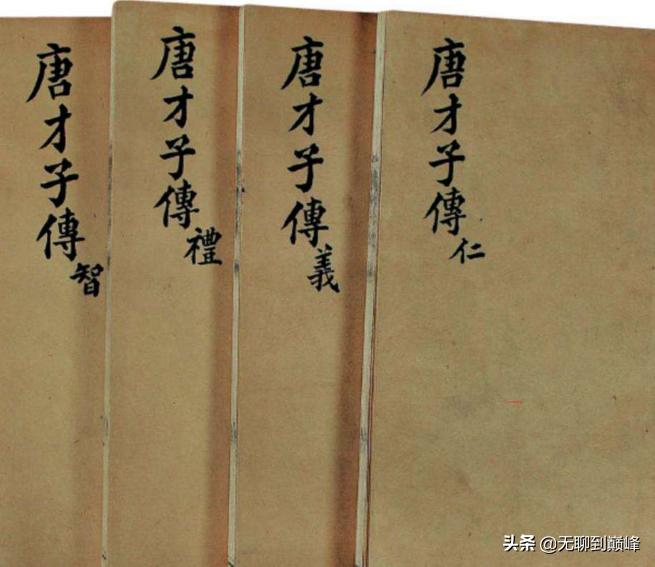 唐才子傳 仁
唐才子傳 義
唐才子傳 禮
唐才子傳 智
头条 @无聊到巅峰